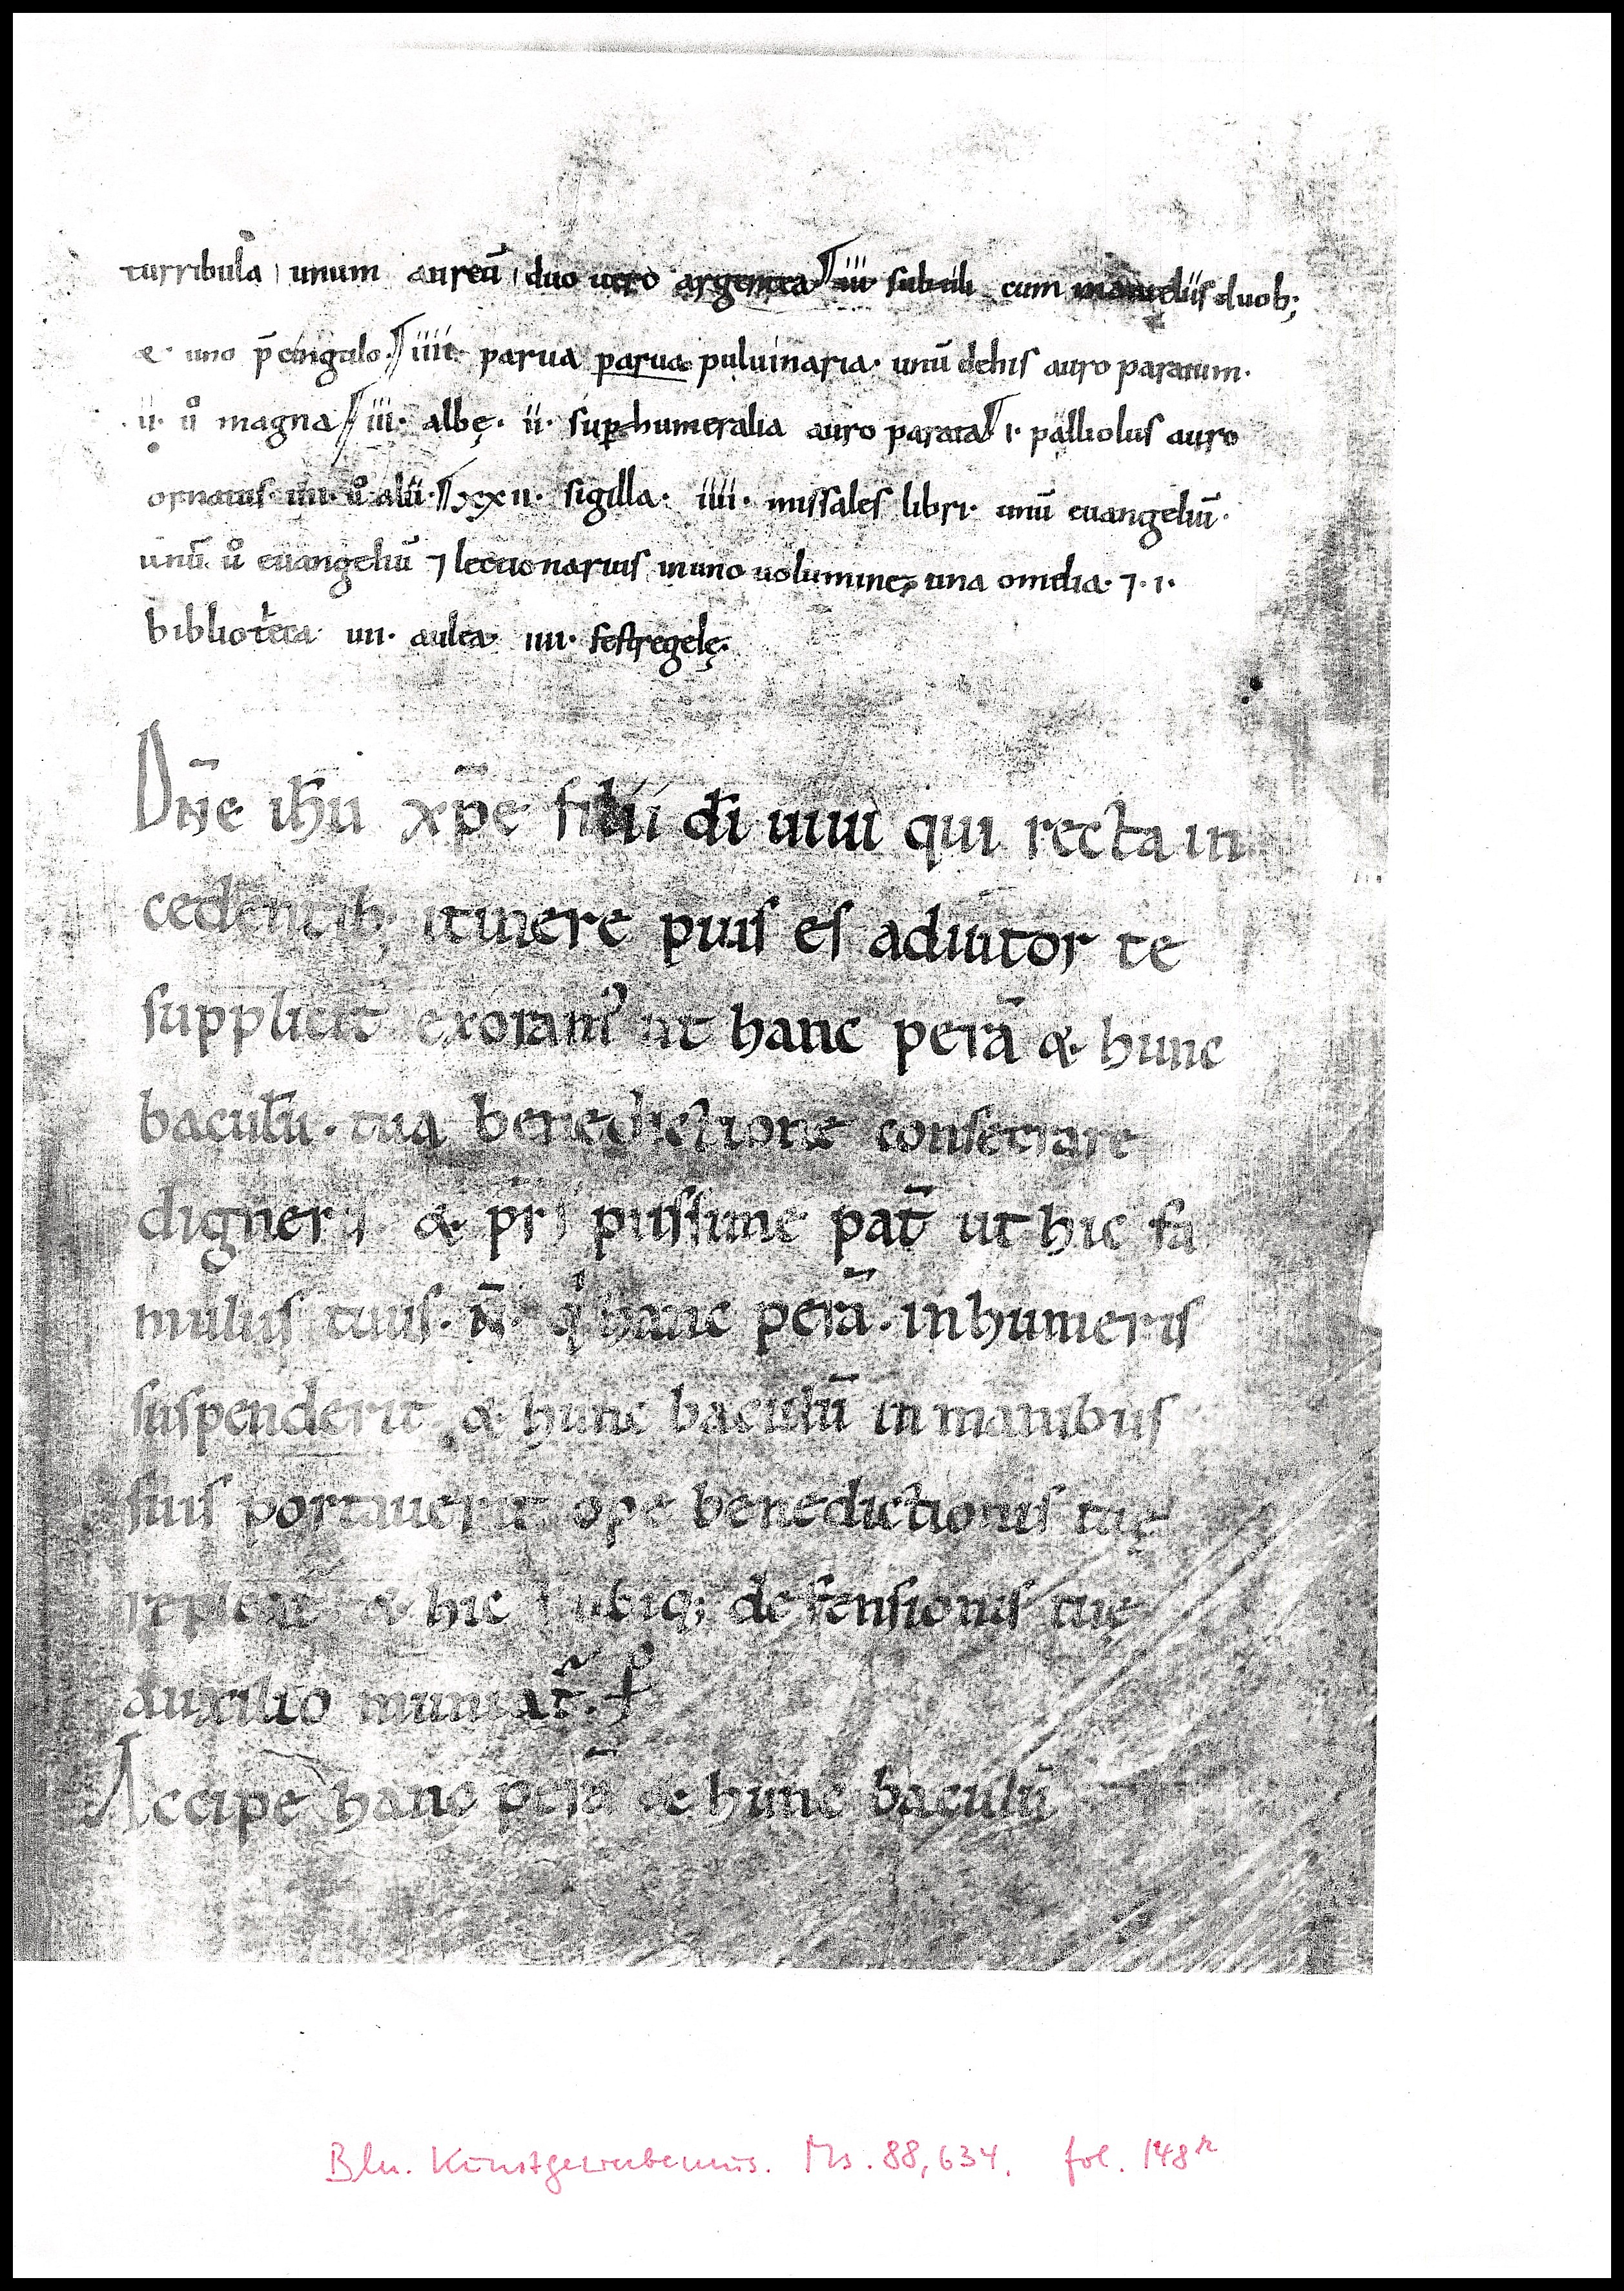 turribula unum aureū duo uero argentea iii subtili cum manuliis duob;
& uno p̄cingulo. iiii parua parua puluinaria. unū dehis auro paratum.
.ii. ů magna iii. albę. ii. suꝑhumeralia auro parata i. palliolus auro
ornatus. iiii. ů alii. xxii. sigilla. iiii. missales libri. unū euangeliū.
unū. ů euangeliū ⁊ lectionarius inuno uolumine; una omelia. ⁊. i.
bibliotheca iiii. aulea. iiii. festregelę.
Dn̄e ih̄u xp̄e filii dī uiui qui recta in
cedentib; itinere puis es adiutor te
supplicit exoram᾽ ut hanc perā & hunc
baculū. tua benedictione consecrare
digneris & pr̄s piissime pat̄ ut hic fa
mulus tuus. N̄. q hanc perā. inhumeris
suspenderit & hunc baculū in manibus
suis portauerit ope benedictionis tuę
repleat & hic ubiq; defensionis tuę
auxilio muniat̄.
Accipe hanc perā & hunc baculū
Bln. Kunstgewerbemus. Ms. 88,634. fol. 148r